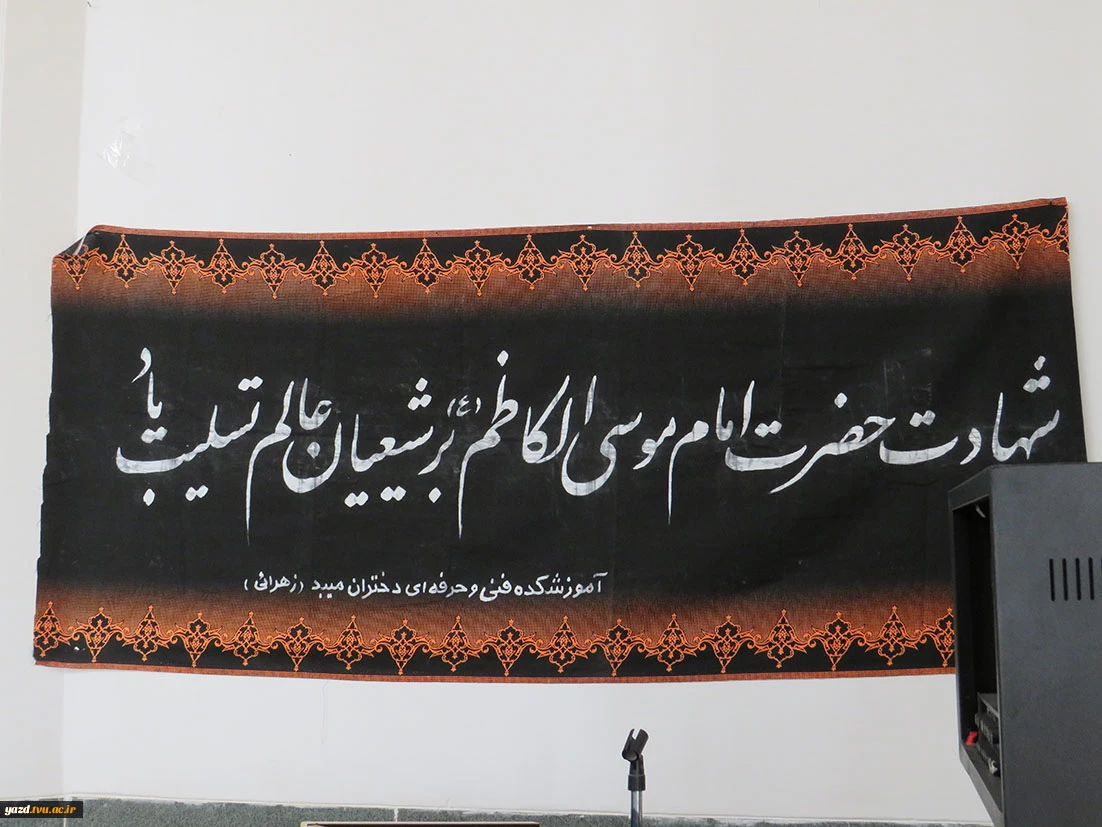 شهادت حضرت امام موسی الکاظم (ع) بر شیعیان عالم تسلیت باد
آموزشکده فنی و حرفه ای دختران میبد (زهرائی)
yazd.tvu.ac.ir